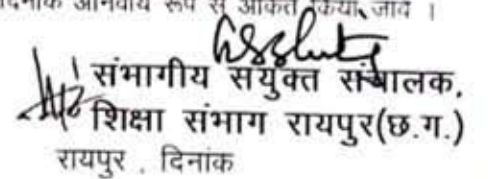 दिनांक अनिवार्य रूप से अंकित किया जावे ।
संभागीय संयुक्त संचालक,
शिक्षा संभाग रायपुर(छ.ग.)
रायपुर , दिनांक